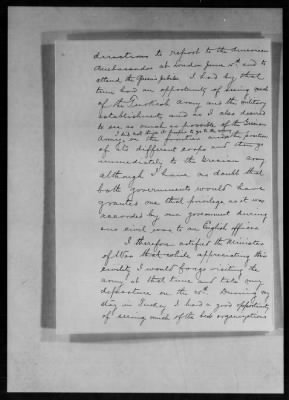 directions to report to the American
Ambassador at London June 20th and to
attend the Queen's Jubilee. I had by that
time had an opportunity of seeing much
of the Turkish Army and the military
establishments, and as I also desired
to see as much as possible of the Grecian
I did not think it proper to go to the
Army, on the frontier and the position
of its different corps and then go
immediately to the Grecian army
although I have no doubt that
both governments would have
granted me that privilege as it was
accorded by our government during
our civil war to an English officer.
I therefore notified the Minister
of War that while appreciating this
civility I would forego visiting the
army at that time and take my
departure on the 20th. During my
stay in Turkey I had a good opportunity
of seeing much of the best organizations